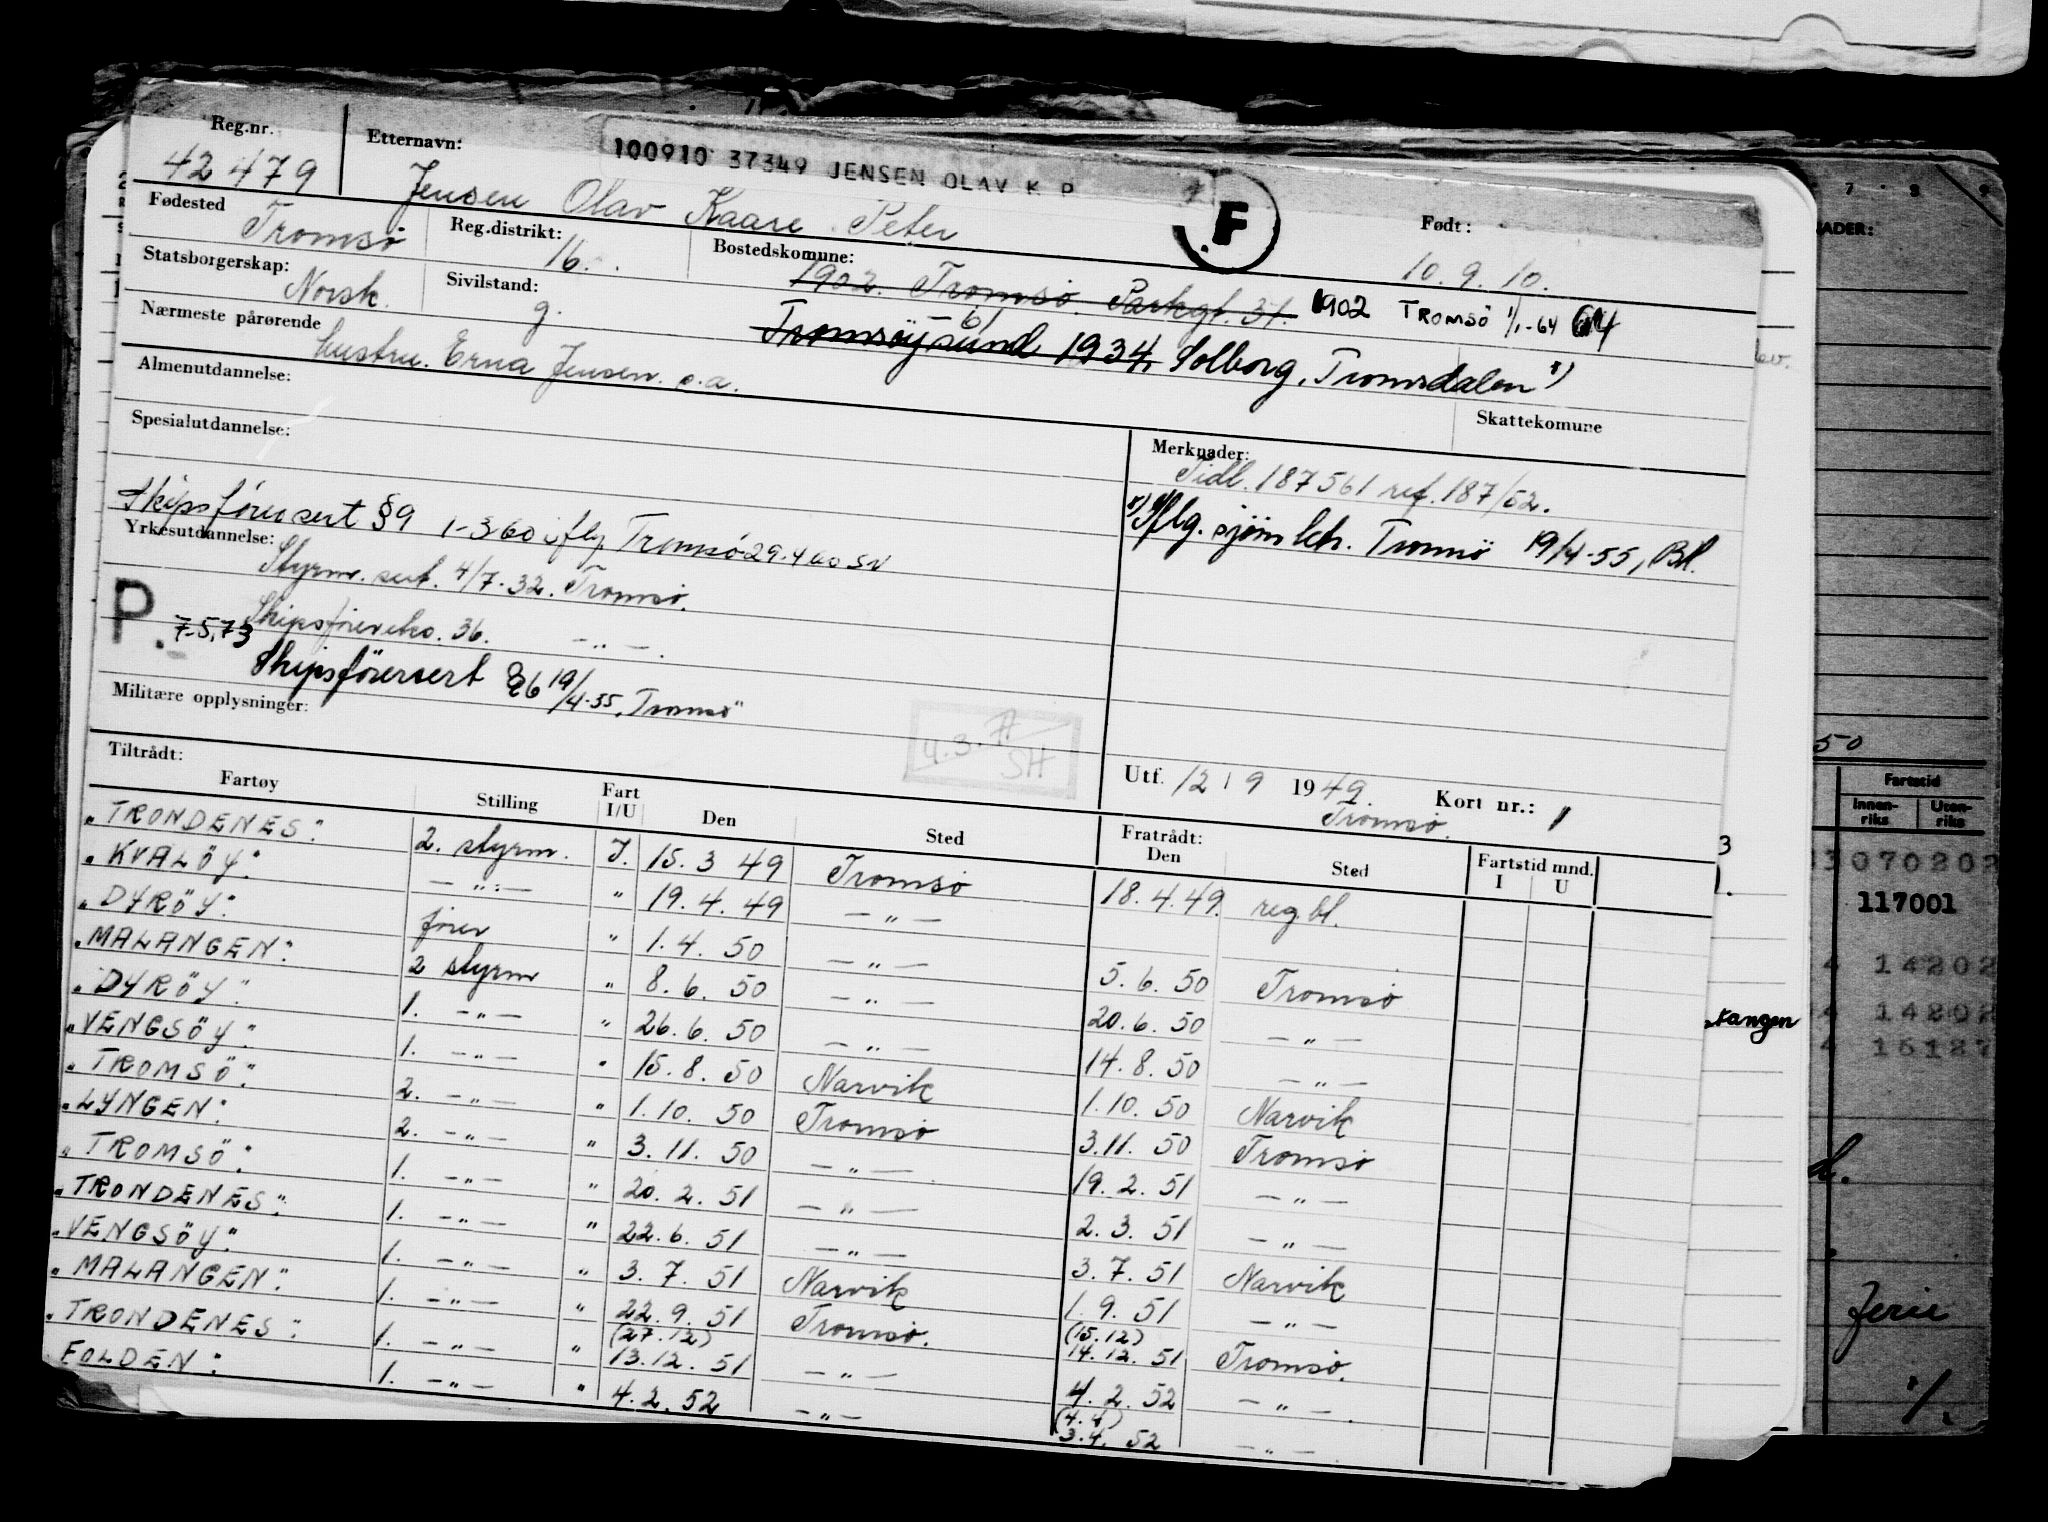 Reg.nr. Etternavn: 100910 37349 JENSEN OLAV K P
42479 Jensen Olav Kaare Peter F Født: 10.9.10.
Fødested Tromsø Reg.distrikt: 16. Bostedskomune: 1902. Tromsø. Parkgt. 31. 1902 TROMSØ 1/1-64
Statsborgerskap: Norsk. Sivilstand: g. Tromsöysund 1934, Solborg, Tromsdalen
Nærmeste pårørende Hustru. Erna Jensen. s.a.
Almenutdannelse: Skattekomune
Spesialutdannelse: Merknader:
Tidl. 187561 ref. 187/52.
Skipsförersert §9 1-3 60 Tromsø 29.4 60 SN
sjöm. Tromsö 19/4-55, Bl.
Yrkesutdannelse: Styrm. sert. 4/7-32. Tromsø.
P. 7.5.73 36. — " —.
Skipsförersert §6 19/4-55, Tromsö
Militære opplysninger: 4.3. SH
Utf. 12 / 9 1949. Kort nr.: 1
Tromsø.
Tiltrådt: Fratrådt:
Fartøy Stilling Fart I/U Den Sted Den Sted Fartstid mnd. I U
"TRONDENES". 2. styrm. I. 15. 3 49 Tromsø 18. 4. 49. reg.bl.
"KVALÖY". — " — " 19. 4. 49 — " —
"DYRÖY". fører " 1. 4. 50 — " — 5. 6. 50 Tromsø
"MALANGEN". 2 styrm " 8. 6. 50 — " — 20. 6. 50 — " —
"DYRÖY". 1. — " — " 26. 6. 50 — " — 14. 8. 50 — " —
"VENGSÖY". 1. — " — " 15. 8. 50 Narvik 1. 10. 50 Narvik
"TROMSÖ". 2. — " — " 1. 10. 50 Tromsø 3. 11. 50 Tromsø
"LYNGEN". 2. — " — " 3. 11. 50 — " — 19. 2. 51 — " —
"TROMSÖ". 1. — " — " 20. 2. 51 — " — 2. 3. 51 — " —
"TRONDENES". 1. — " — " 22. 6. 51 — " — 3. 7. 51 Narvik
"VENGSÖY". 1. — " — " 3. 7. 51 Narvik 1. 9. 51 — " —
"MALANGEN". 1. — " — " 22. 9. 51 Tromsø. (15.12) 14. 12. 51 Tromsø.
"TRONDENES". 1. — " — " (27.12) 13. 12. 51 — " — 4. 2. 52 — " —.
FOLDEN". 1. — " — " 4. 2. 52 — " — (4.4) 3. 4. 52 — " —
7 8 9
50
Fartstid
Innenriks Utenriks
3070202
117001
14202
14202
16187
tangen
Ferie